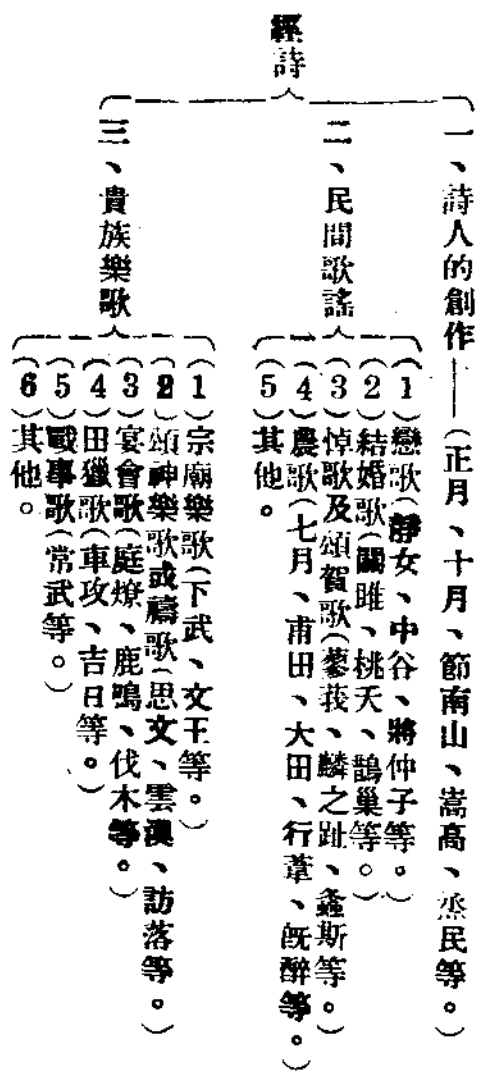 經詩
一、詩人的創作——（正月、十月、節南山、嵩高、烝民等。）
二、民間歌謠
（1）戀歌（靜女、中谷、將仲子等。）
（2）結婚歌（關雎、桃夭、鵲巢等。）
（3）悼歌及頌賀歌（蓼莪、麟之趾、螽斯等。）
（4）農歌（七月、甫田、大田、行葦、既醉等。）
（5）其他。
三、貴族樂歌
（1）宗廟樂歌（下武、文王等。）
（2）頌神樂歌或禱歌（思文、雲漢、訪落等。）
（3）宴會歌（庭燎、鹿鳴、伐木等。）
（4）田獵歌（車攻、吉日等。）
（5）戰事歌（常武等。）
（6）其他。